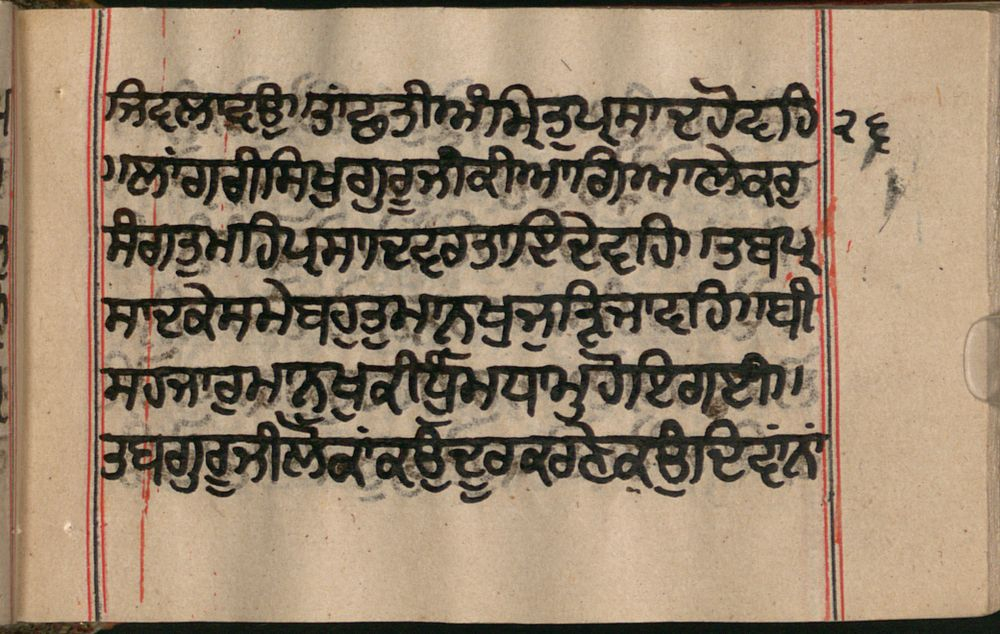 ਜਿਦਲਾਵਉ।ਤਾਂਛਤੀਅੰਮ੍ਰਿਤੁਪ੍ਰਸਾਦਹੋਵਹਿ ੨੬
।।ਲਾਂਗਰੀਸਿਖੁਗੁਰੂਜੀਕੀਆਗਿਆਲੇਕਰੁ
ਸੰਗਤੁਮਹਿਪ੍ਰਸਾਦਵਰਤਾਇਦੇਵਹਿ।ਤਬਪ੍ਰ
ਸਾਦਕੇਸਮੇਬਹੁਤੁਮਾਨੁਖੁਜੁੜਿਜਾਵਹਿ।।ਬੀ
ਸਹਜਾਰੁਮਾਨੁਖੁਕੀਧੂੰਮਧਾਮੁਹੋਇਗਈ।।
ਤਬਗੁਰੂਜੀਲੋਕਾਂਕਉਦੂਰਕਰਣੇਕਉਦਿਵਾਂਨਾਂ